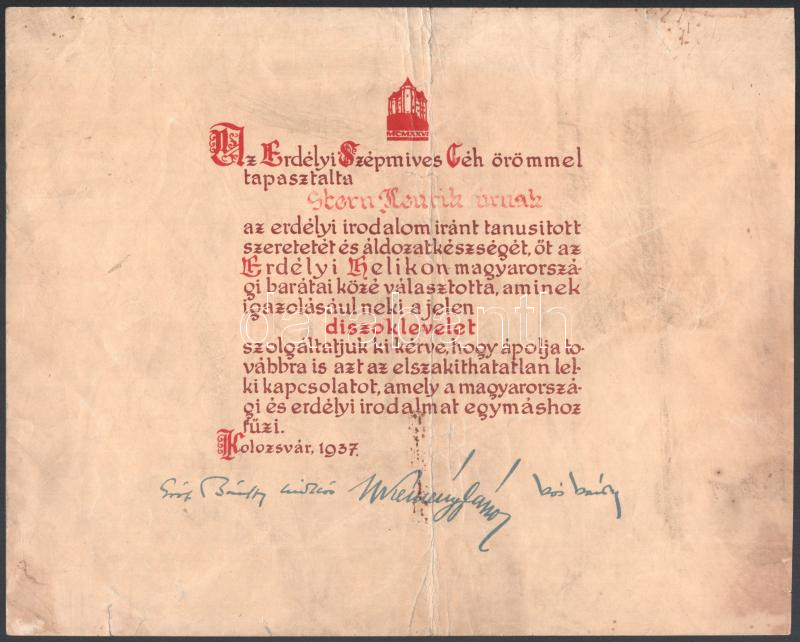 MCMXXVI
Az Erdélyi Szépmives Céh örömmel
tapasztalta
Stern úrnak
az erdélyi irodalom iránt tanusitott
szeretetét és áldozatkészségét, őt az
Erdélyi Helikon magyarorszá-
gi barátai közé választotta, aminek
igazolásául neki a jelen
diszoklevelet
szolgáltatjuk ki kérve, hogy ápolja to-
vábbra is azt az elszakithatatlan lel-
ki kapcsolatot, amely a magyarorszá-
gi és erdélyi irodalmat egymáshoz
fűzi.
Kolozsvár, 1937.
Gróf Bánffy Miklós Kemény János Kós Károly
darabanth